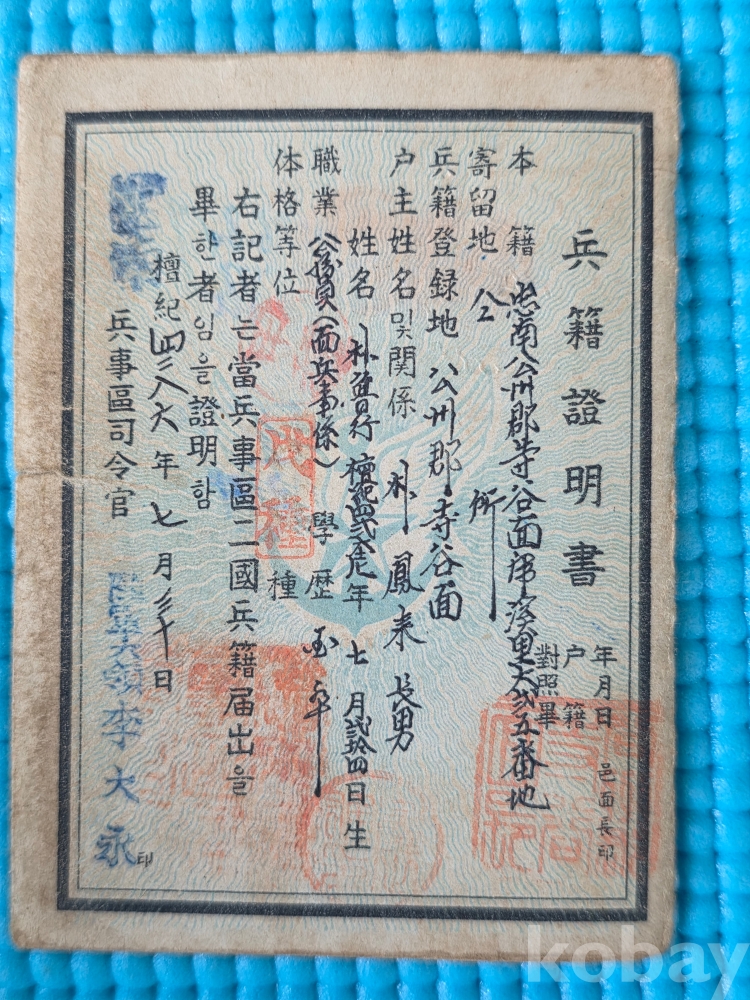 兵籍證明書
年月日 邑面長印
戶籍
對照畢
本籍 忠南公州郡寺谷面 里六弐五番地
寄留地 仝 所
兵籍登録地 公州郡寺谷面
戶主姓名및關係 朴鳳来 長男
姓名 朴 行 檀紀四 年七月弐拾四日生
職業 公務員(面兵事係) 學歷 卒
体格等位 戊種 種
右記者는當兵事區二國兵籍届出을
畢한者임을證明함
檀紀四二八六年七月三十日
兵事區司令官 陸軍大領李大永 印
kobay